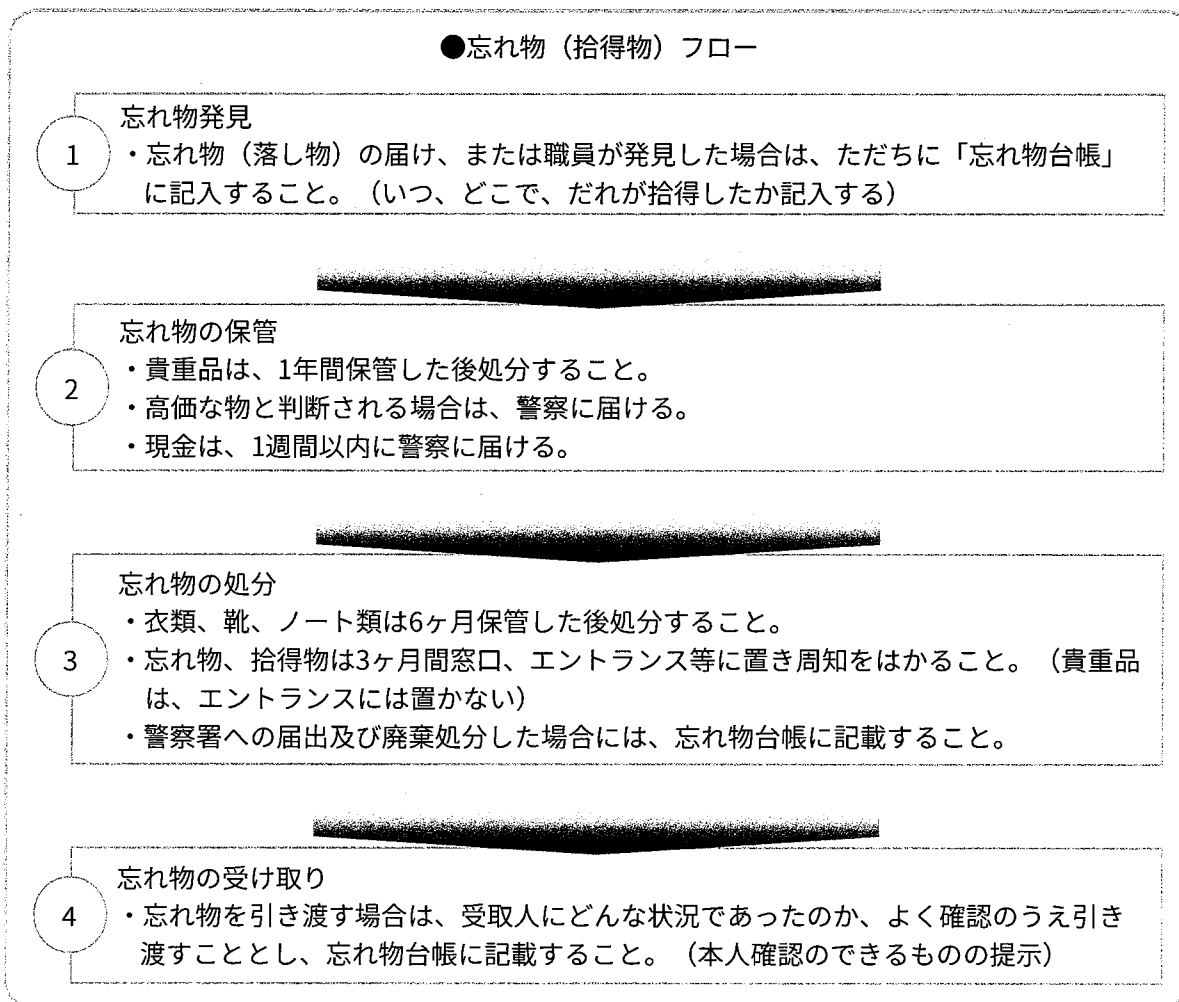 ●忘れ物（拾得物）フロー
1
忘れ物発見
・忘れ物（落し物）の届け、または職員が発見した場合は、ただちに「忘れ物台帳」
に記入すること。（いつ、どこで、だれが拾得したか記入する）
2
忘れ物の保管
・貴重品は、1年間保管した後処分すること。
・高価な物と判断される場合は、警察に届ける。
・現金は、1週間以内に警察に届ける。
3
忘れ物の処分
・衣類、靴、ノート類は6ヶ月保管した後処分すること。
・忘れ物、拾得物は3ヶ月間窓口、エントランス等に置き周知をはかること。（貴重品
は、エントランスには置かない）
・警察署への届出及び廃棄処分した場合には、忘れ物台帳に記載すること。
4
忘れ物の受け取り
・忘れ物を引き渡す場合は、受取人にどんな状況であったのか、よく確認のうえ引き
渡すこととし、忘れ物台帳に記載すること。（本人確認のできるものの提示）